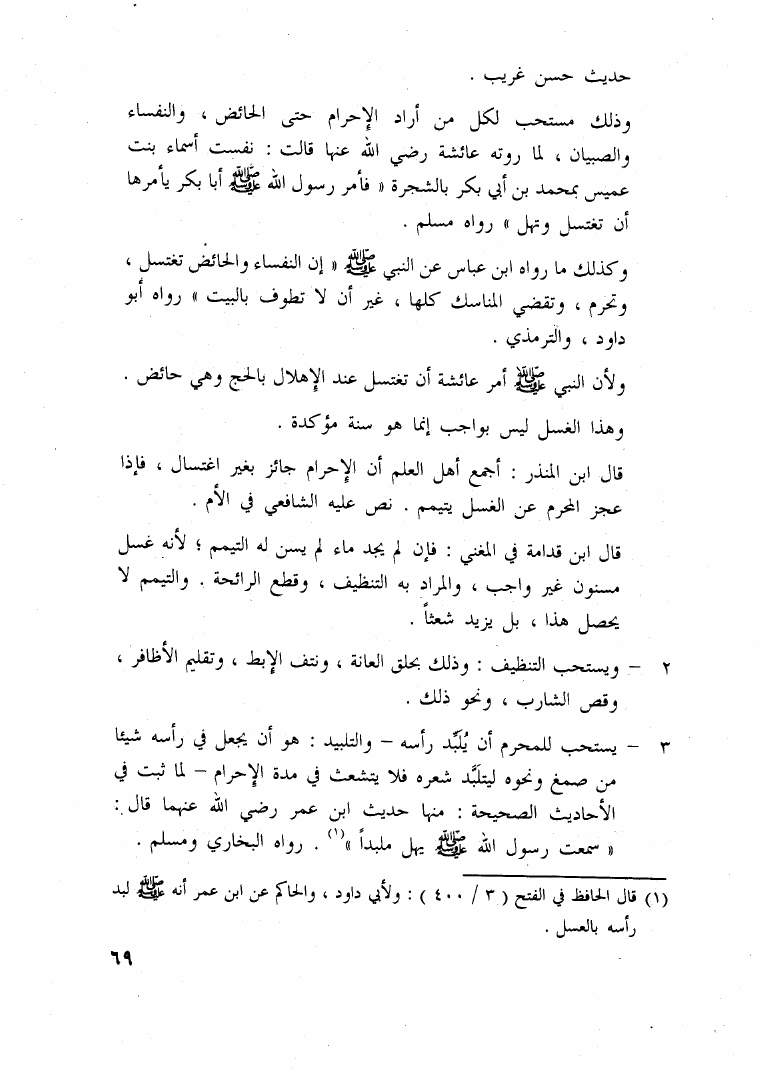 حديث حسن غريب .
وذلك مستحب لكل من أراد الإحرام حتى الحائض ، والنفساء
والصبيان ، لما روته عائشة رضي الله عنها قالت : نفست أسماء بنت
عميس بمحمد بن أبي بكر بالشجرة « فأمر رسول الله ﷺ أبا بكر يأمرها
أن تغتسل وتهل » رواه مسلم .
وكذلك ما رواه ابن عباس عن النبي ﷺ « إن النفساء والحائض تغتسل ،
وتحرم ، وتقضي المناسك كلها ، غير أن لا تطوف بالبيت » رواه أبو
داود ، والترمذي .
ولأن النبي ﷺ أمر عائشة أن تغتسل عند الإهلال بالحج وهي حائض .
وهذا الغسل ليس بواجب إنما هو سنة مؤكدة .
قال ابن المنذر : أجمع أهل العلم أن الإحرام جائز بغير اغتسال ، فإذا
عجز المحرم عن الغسل يتيمم . نص عليه الشافعي في الأم .
قال ابن قدامة في المغني : فإن لم يجد ماء لم يسن له التيمم ؛ لأنه غسل
مسنون غير واجب ، والمراد به التنظيف ، وقطع الرائحة . والتيمم لا
يحصل هذا ، بل يزيد شعثاً .
٢ – ويستحب التنظيف : وذلك بحلق العانة ، ونتف الإبط ، وتقليم الأظافر ،
وقص الشارب ، ونحو ذلك .
٣ – يستحب للمحرم أن يُلَبِّد رأسه – والتلبيد : هو أن يجعل في رأسه شيئا
من صمغ ونحوه ليتلَبَّد شعره فلا يتشعث في مدة الإحرام – لما ثبت في
الأحاديث الصحيحة : منها حديث ابن عمر رضي الله عنهما قال :
« سمعت رسول الله ﷺ يهل ملبداً »(١) . رواه البخاري ومسلم .
(١) قال الحافظ في الفتح ( ٣ / ٤٠٠ ) : ولأبي داود ، والحاكم عن ابن عمر أنه ﷺ لبد
رأسه بالعسل .
٦٩